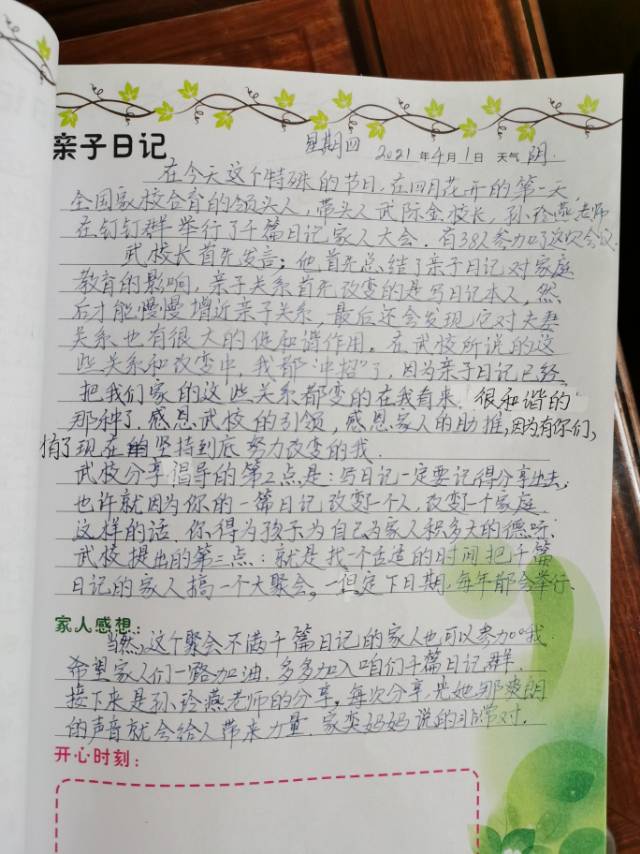 亲子日记 星期四 2021年4月1日 天气 阴.
在今天这个特殊的节日,在四月花开的第一天
全国家校合育的领头人,带头人武陈金校长,孙玲燕老师
在钉钉群举行了千篇日记家人大会.有38人参加了这次会议.
武校长首先发言;他首先总结了亲子日记对家庭
教育的影响,亲子关系首先改变的是写日记本人,然
后才能慢慢增近亲子关系,最后还会发现它对夫妻
关系也有很大的促和谐作用.在武校所说的这
些关系和改变中,我都"中招"了,因为亲子日记已经
把我们家的这些关系都变的在我看来.很和谐的
那种了.感恩武校的引领,感恩家人的助推,因为有你们,
才有了现在的坚持到底努力改变的我.
武校分享倡导的第2点是:写日记一定要记得分享出去.
也许就因为你的一篇日记改变一个人,改变一个家庭.
这样的话.你得为孩子为自己为家人积多大的德呀.
武校提出的第三点:就是找一个合适的时间把千篇
日记的家人搞一个大聚会,一但定下日期,每年都会举行.
家人感想:
当然,这个聚会不满千篇日记的家人也可以参加。我
希望家人们一路加油,多多加入咱们千篇日记群.
接下来是孙玲燕老师的分享,每次分享,是她那爽朗
的声音就会给人带来力量.家奕妈妈说的非常对.
开心时刻: